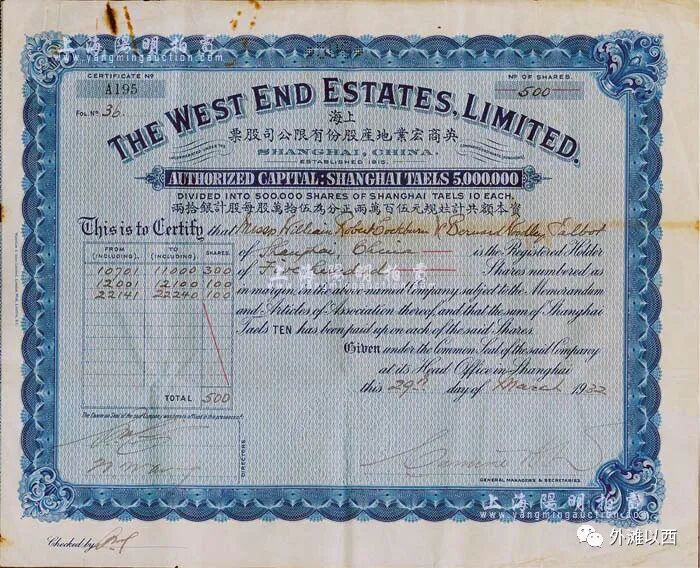 上海陽明拍賣
www.yangmingauction.com
CERTIFICATE Nº
A195
Nº OF SHARES.
500
FOL. Nº 36
THE WEST END ESTATES, LIMITED.
上海
票股司公限有份股產地業宏商英
INCORPORATED UNDER THE COMPANIES ORDINANCES, HONGKONG.
SHANGHAI, CHINA.
ESTABLISHED 1915.
AUTHORIZED CAPITAL: SHANGHAI TAELS 5,000,000
DIVIDED INTO 500,000 SHARES OF SHANGHAI TAELS 10 EACH.
兩拾銀計股每股萬拾伍為分正兩萬百伍元規社計共額本資
This is to Certify that Messrs William Robert Cockburn & Bernard Hadley Talbot
of Shanghai, China is the Registered Holder
of Five hundred Shares numbered as
in margin, in the above named Company, subject to the Memorandum
and Articles of Association thereof, and that the sum of Shanghai
Taels TEN has been paid up on each of the said Shares.
Given under the Common Seal of the said Company
at its Head Office in Shanghai
this 29th day of March 1932
FROM (INCLUDING). TO (INCLUDING). SHARES.
10701 11000 300
12001 12100 100
22141 22240 100
TOTAL 500
The Common Seal of the said Company was hereto affixed in the presence of:
DIRECTORS
GENERAL MANAGERS & SECRETARIES
Checked by
上海陽明拍賣
www.yangmingauction.com
上海陽明拍賣
www.yangmingauction.com
外滩以西